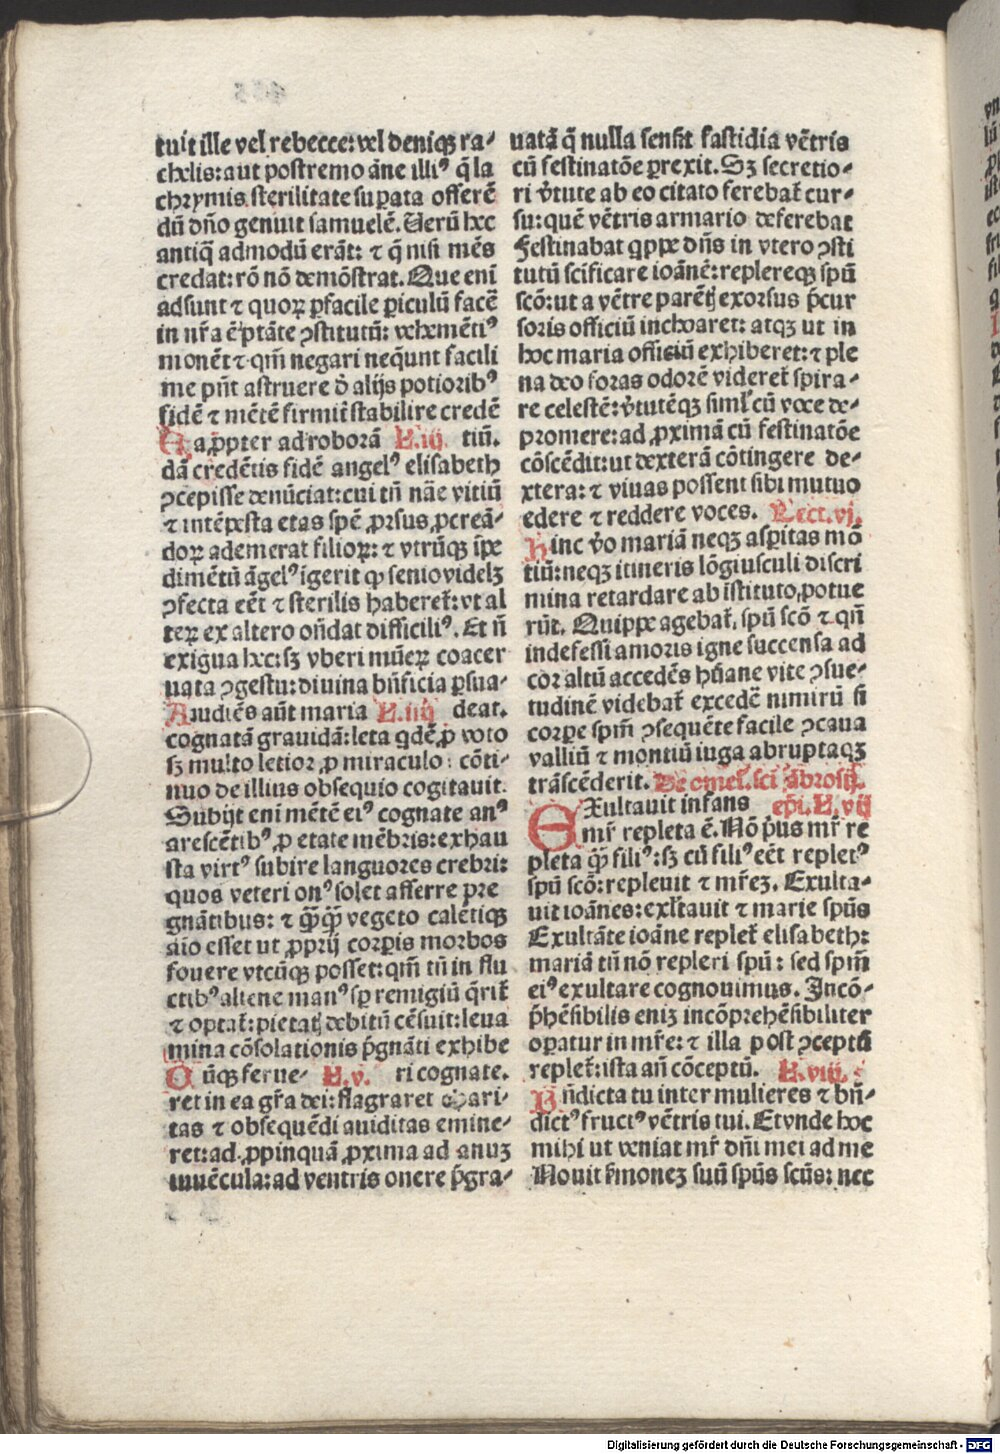 tuit ille vel rebecce: vel deniqꝫ ra⸗
chelis: aut postremo āne illiꝰ q̄ la
chrymis sterilitate suꝑata offerē
dū dn̄o genuit samuelē. Uerū hec
antiq̄ admodū erāt: ⁊ q̄ nisi mēs
credat: rō nō demōstrat. Que enī
adsunt ⁊ quoꝝ ꝑfacile ꝑiculū facē
in nr̄a ē ptāte ꝯstitutū: vehemētiꝰ
monēt ⁊ qm̄ negari neq̄unt facili
me pn̄t astruere d̄ alijs potioribꝰ
fidē ⁊ mētē firmit̄ stabilire credē
Ea ꝓpter ad roborā L.iij. tiū.
dā credētis fidē angelꝰ elisabeth
ꝯcepisse denūciat: cui tn̄ nāe vitiū
⁊ intēpesta etas spē ꝓrsus ꝓcreā⸗
doꝝ ademerat filioꝝ: ⁊ vtrūqꝫ īpe
dimētū āgelꝰ īgerit ꝙ senio videlꝫ
ꝯfecta eēt ⁊ sterilis haberet̄: vt al
teꝝ ex altero on̄dat difficiliꝰ. Et n̄
exigua hec: sꝫ vberi mūeꝝ coacer
uata ꝯgestu: diuina bn̄ficia ꝑsua⸗
Audiēs aūt maria L.iiij deat.
cognatā grauidā: leta qdē ꝓ voto
sꝫ multo letior ꝓ miraculo: cōti⸗
nuo de illius obsequio cogitauit.
Subijt eni mētē eiꝰ cognate anꝰ
arescētibꝰ ꝓ etate mēbris: exhau
sta virtꝰ subire languores crebri:
quos veteri onꝰ solet afferre pre
gnātibus: ⁊ qͣ̄qͣ̄ vegeto caletiqꝫ
aīo esset ut ꝓprij corꝑis morbos
fouere vtcūqꝫ posset: qm̄ tn̄ in flu
ctibꝰ aliene manꝰ sp remigiū q̄rit̄
⁊ optat̄: pietatꝭ debitū cēsuit: leua
mina cōsolationis p̄gnāti exhibe
Cūqꝫ ferue⸗ L.v. ri cognate.
ret in ea gr̄a dei: flagraret chari⸗
tas ⁊ obsequēdi auiditas emine⸗
ret: ad ꝓpinquā ꝓxima ad anuꝫ
iuuēcula: ad ventris onere p̄gra⸗
uatā q̄ nulla sensit fastidia vētris
cū festinatōe ꝑrexit. Sꝫ secretio⸗
ri v̄tute ab eo citato ferebat̄ cur⸗
su: quē vētris armario deferebat
Festinabat qppe dn̄s in vtero ꝯsti
tutū scificare ioānē: replereqꝫ spū
scō: ut a vētre parētꝭ exorsus p̄cur
soris officiū inchoaret: atqꝫ ut in
hoc maria officiū exhiberet: ⁊ ple
na deo foras odorē videret̄ spira⸗
re celestē: v̄tutēqꝫ siml̄ cū voce de⸗
promere: ad ꝓximā cū festinatōe
cōscēdit: ut dexterā cōtingere de⸗
xtera: ⁊ viuas possent sibi mutuo
edere ⁊ reddere voces. Lect.vj.
Hinc v̄o mariā neqꝫ asꝑitas mō
tiū: neqꝫ itineris lōgiusculi discri
mina retardare ab īstituto potue
rūt. Quippe agebat̄ spū scō ⁊ qn̄
indefessi amoris igne succensa ad
cor altū accedēs hūane vite ꝯsue⸗
tudinē videbat̄ excedē nimirū si
corꝑe spm̄ ꝯsequēte facile ꝯcaua
valliū ⁊ montiū iuga abruptaqꝫ
trāscēderit. De omel̄. sci ābrosij.
EXultauit infans ep̄i. L.vij
⁊ mr̄ repleta ē. Nō p̄us mr̄ re
pleta qͣ̄ filiꝰ: sꝫ cū filiꝰ eēt repletꝰ
spū scō: repleuit ⁊ mr̄eꝫ. Exulta⸗
uit ioānes: exl̄tauit ⁊ marie spūs
Exultāte ioāne replet̄ elisabeth:
mariā tn̄ nō repleri spū: sed spm̄
eiꝰ exultare cognouimus. Incō⸗
p̄hēsibilis eniꝫ incōprehēsibiliter
oꝑatur in mr̄e: ⁊ illa post ꝯceptū
replet̄: ista an̄ cōceptū. L.viij.
Bn̄dicta tu inter mulieres ⁊ bn̄⸗
dictꝰ fructꝰ vētris tui. Et vnde hoc
mihi ut veniat mr̄ dn̄i mei ad me
Nouit s̄moneꝫ suū spūs scūs: nec
Digitalisierung gefördert durch die Deutsche Forschungsgemeinschaft - DFG